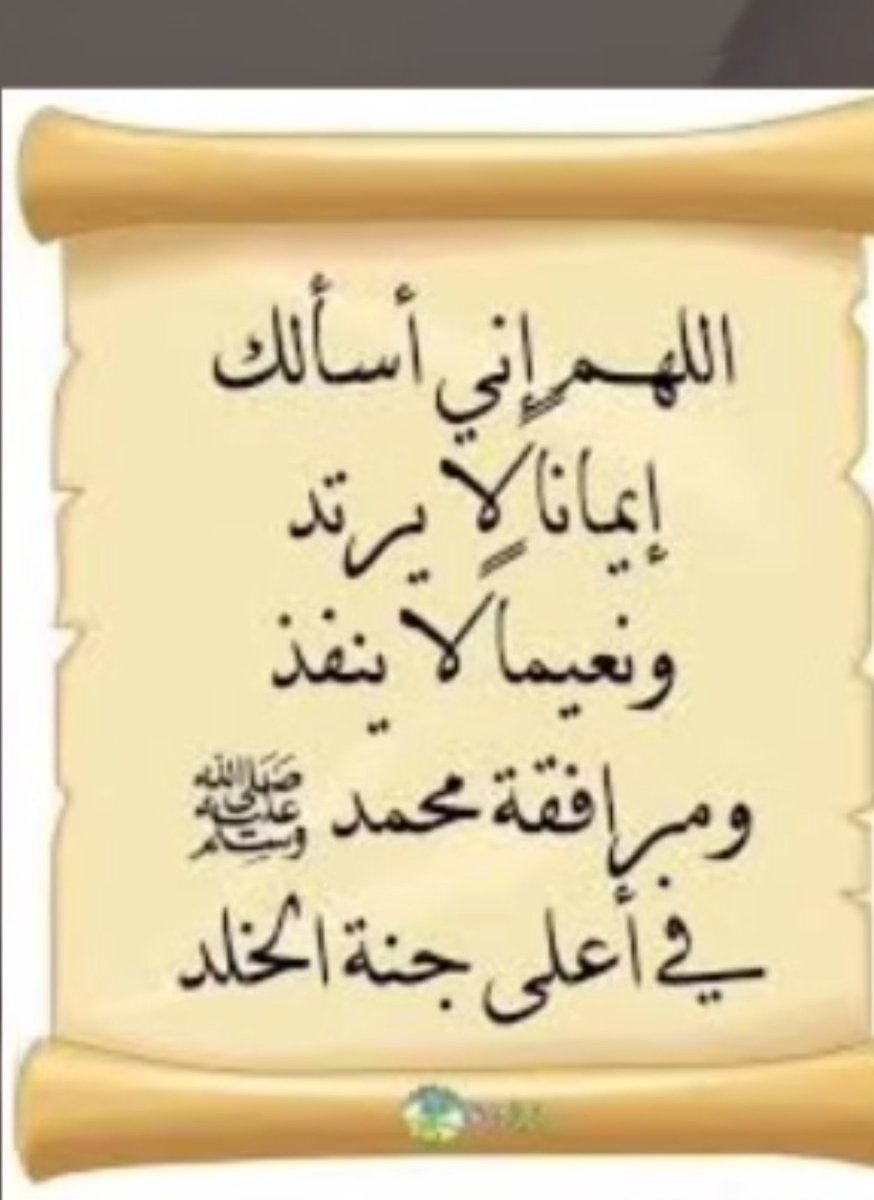 اللهم إني أسألك
إيمانا لا يرتد
ونعيما لا ينفذ
ومرافقة محمد ﷺ
في أعلى جنة الخلد